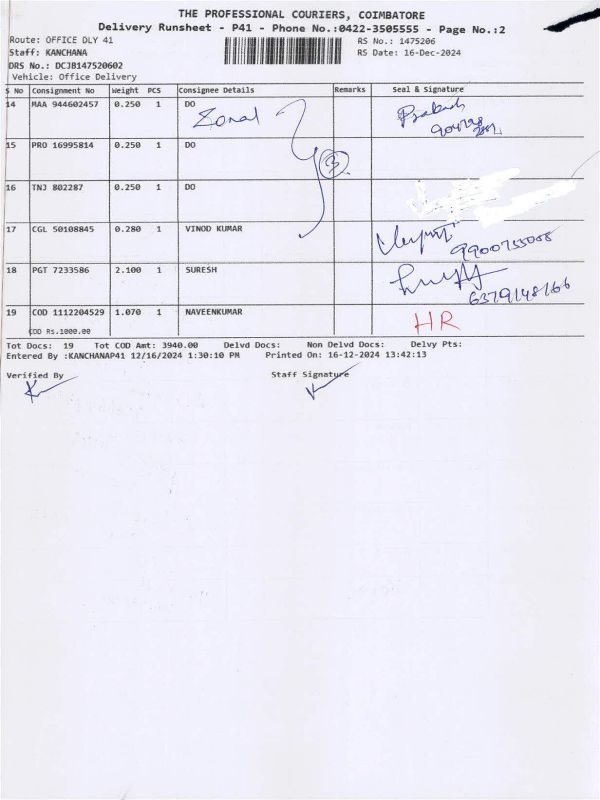 THE PROFESSIONAL COURIERS, COIMBATORE
Delivery Runsheet - P41 - Phone No.:0422-3505555 - Page No.:2
Route: OFFICE DLY 41 RS No.: 1475206
Staff: KANCHANA RS Date: 16-Dec-2024
DRS No.: DCJB147520602
Vehicle: Office Delivery
S No Consignment No Weight PCS Consignee Details Remarks Seal & Signature
14 MAA 944602457 0.250 1 DO
Zonal Prakash
15 PRO 16995814 0.250 1 DO
3
16 TNJ 802287 0.250 1 DO
17 CGL 50108845 0.280 1 VINOD KUMAR
9900755008
18 PGT 7233586 2.100 1 SURESH
6379148166
19 COD 1112204529 1.070 1 NAVEENKUMAR HR
COD RS.1000.00
Tot Docs: 19 Tot COD Amt: 3940.00 Delvd Docs: Non Delvd Docs: Delvy Pts:
Entered By :KANCHANAP41 12/16/2024 1:30:10 PM Printed On: 16-12-2024 13:42:13
Verified By Staff Signature